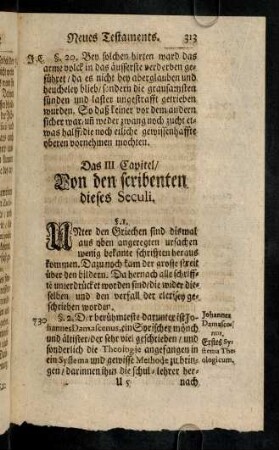 Neues Testaments. 313
J.C. §. 20. Bey solchen hirten ward das
arme volck in das äusserste verderben ge-
führet / da es nicht bey aberglauben und
heucheley blieb / sondern die grausamsten
sünden und laster ungestrafft getrieben
wurden. So daß keiner vor dem andern
sicher war / uñ weder zwang noch zucht et-
was halff / die noch etliche gewissenhaffte
obern vornehmen mochten.
Das III Capitel /
Von den scribenten
dieses Seculi.
§. 1.
UNter den Griechen sind dismal
aus oben angeregten ursachen
wenig bekante schrifften heraus
kommen. Dazu noch kam der grosse streit
über den bildern. Da hernach alle schriff-
te unterdrücket worden sind / die wider die-
selben und den verfall der clerisey ge-
schrieben worden.
730 §. 2. Der berühmteste darunter ist Jo-
hannes Damascenus, ein Syrischer mönch
und ältister / der sehr viel geschrieben / und
sonderlich die Theologie angefangen in
ein Systema und gewisse Methode zu brin-
gen / darinnen ihm die schul-lehrer her-
Johannes
Damasce-
nus,
Erstes Sy-
stema Theo-
logicum.
U 5 nach